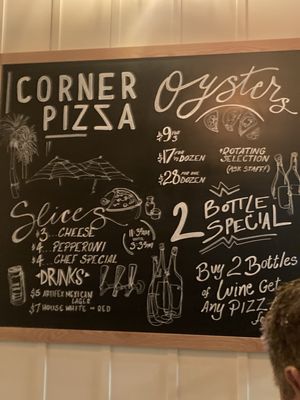 CORNER
PIZZA
Oysters
$9 FOR 3
$17 FOR ½ DOZEN
$28 FOR ONE DOZEN
*ROTATING
SELECTION
(ASK STAFF)
Slices
$3 CHEESE
$4 PEPPERONI
$4 CHEF SPECIAL
*DRINKS*
$5 MEXICAN
LAGER
$7 HOUSE WHITE OR RED
2 BOTTLE
SPECIAL
BUY 2 BOTTLES
OF WINE GET
ANY PIZZA